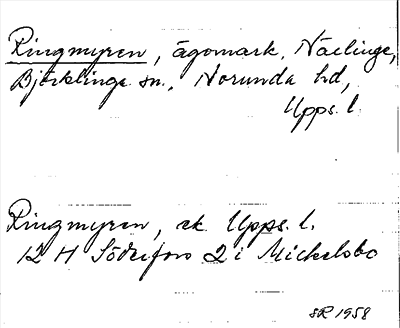 Ringmyren, ägomark, Näslinge,
Björklinge sn., Norunda hd,
Upps. l.
Ringmyren, ek. Upps. l.
12 H Söderfors 2 i Mickelsbo
SR 1958